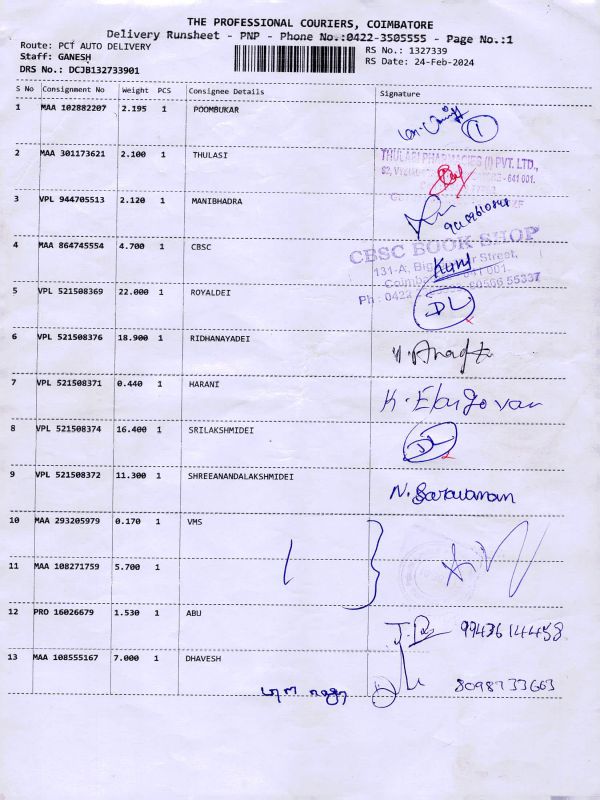 THE PROFESSIONAL COURIERS, COIMBATORE
Delivery Runsheet - PNP - Phone No.:0422-3505555 - Page No.:1
Route: PCT AUTO DELIVERY RS No.: 1327339
Staff: GANESH RS Date: 24-Feb-2024
DRS No.: DCJB132733901
S No Consignment No Weight PCS Consignee Details Signature
1 MAA 102882207 2.195 1 POOMBUKAR 1
2 MAA 301173621 2.100 1 THULASI
THULASI PHARMACIES (I) PVT. LTD.,
- 641 001.
3 VPL 944705513 2.120 1 MANIBHADRA
4 MAA 864745554 4.700 1 CBSC
CBSC BOOK SHOP
131-A, Big Street,
641 001.
Ph : 0422 55337
5 VPL 521508369 22.000 1 ROYALDEI DL
6 VPL 521508376 18.900 1 RIDHANAYADEI
7 VPL 521508371 0.440 1 HARANI K. Elango van
8 VPL 521508374 16.400 1 SRILAKSHMIDEI DL
9 VPL 521508372 11.300 1 SHREEANANDALAKSHMIDEI N. Saravanan
10 MAA 293205979 0.170 1 VMS
11 MAA 108271759 5.700 1
12 PRO 16026679 1.530 1 ABU 9943614458
13 MAA 108555167 7.000 1 DHAVESH 8098733663